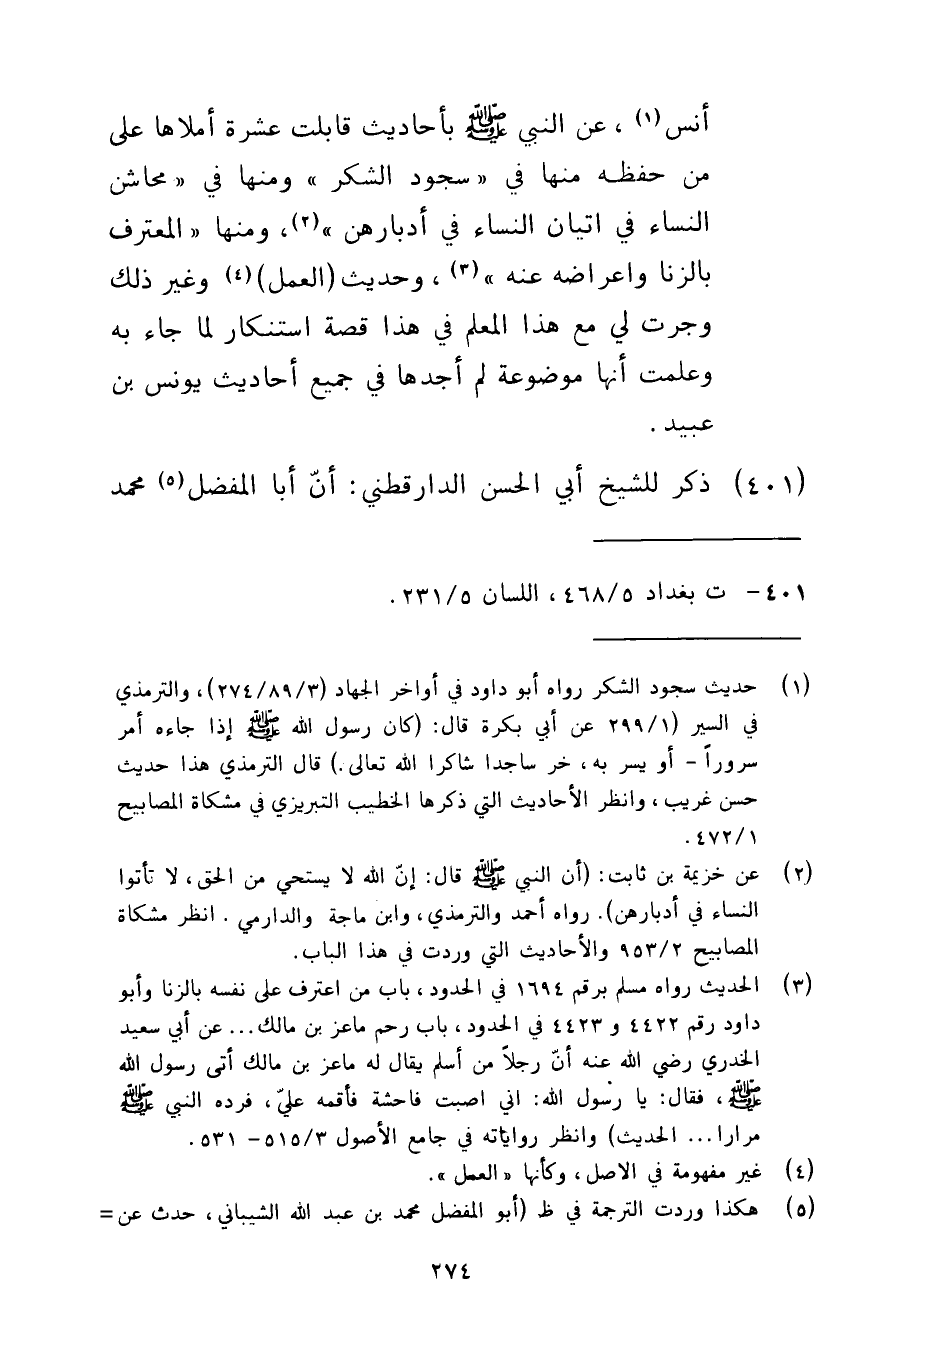 أنس(١) ، عن النبي ﷺ بأحاديث قابلت عشرة أملاها على
من حفظه منها في « سجود الشكر » ومنها في « محاشن
النساء في اتيان النساء في أدبارهن »(٢)، ومنها « المعترف
بالزنا واعراضه عنه »(٣) ، وحديث (العمل)(٤) وغير ذلك
وجرت لي مع هذا المعلم في هذا قصة استنكار لما جاء به
وعلمت أنها موضوعة لم أجدها في جميع أحاديث يونس بن
عبيد .
(٤٠١) ذكر للشيخ أبي الحسن الدارقطني: أنّ أبا المفضل(٥) محمد
٤٠١- ت بغداد ٤٦٨/٥ ، اللسان ٢٣١/٥ .
(١) حديث سجود الشكر رواه أبو داود في أواخر الجهاد (٢٧٤/٨٩/٣)، والترمذي
في السير (٢٩٩/١ عن أبي بكرة قال: (كان رسول الله ﷺ إذا جاءه أمر
سروراً - أو يسر به ، خر ساجدا شاكرا الله تعالى.) قال الترمذي هذا حديث
حسن غريب ، وانظر الأحاديث التي ذكرها الخطيب التبريزي في مشكاة المصابيح
٤٧٢/١ .
(٢) عن خزيمة بن ثابت: (أن النبي ﷺ قال: إنّ الله لا يستحي من الحق ، لا تأتوا
النساء في أدبارهن). رواه أحمد والترمذي، وابن ماجة والدارمي . انظر مشكاة
المصابيح ٩٥٣/٢ والأحاديث التي وردت في هذا الباب.
(٣) الحديث رواه مسلم برقم ١٦٩٤ في الحدود ، باب من اعترف على نفسه بالزنا وأبو
داود رقم ٤٤٢٢ و ٤٤٢٣ في الحدود ، باب رجم ماعز بن مالك... عن أبي سعيد
الخدري رضي الله عنه أنّ رجلاً من أسلم يقال له ماعز بن مالك أتى رسول الله
ﷺ ، فقال: يا رسول الله: اني اصبت فاحشة فأقمه عليّ ، فرده النبي ﷺ
مرارا... الحديث) وانظر رواياته في جامع الأصول ٥١٥/٣- ٥٣١ .
(٤) غير مفهومة في الاصل ، وكأنها « العمل ».
(٥) هكذا وردت الترجمة في ظ (أبو المفضل محمد بن عبد الله الشيباني ، حدث عن=
٢٧٤